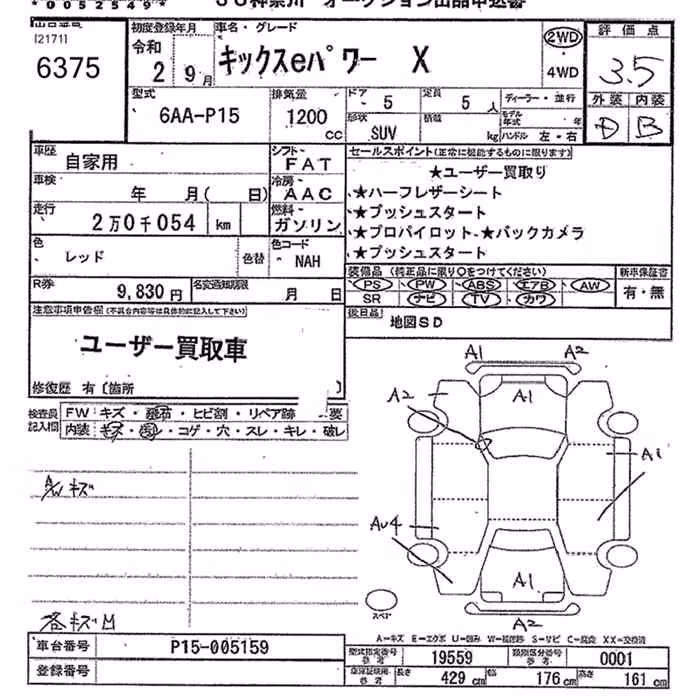 *0052549*
出品番号
[2171]
6375
初度登録年月
令和
2 9月
車名・グレード
キックスeパワー X
2WD
4WD
評価点
3.5
外装 内装
D B
型式
6AA-P15
排気量
1200 cc
ドア
5
定員
5人
形状
SUV
積載
kg
ディーラー・並行
モデル年式 年
ハンドル 左・右
車歴
自家用
シフト
FAT
車検
年 月( 日)
冷房
AAC
走行
2万0千054 km
燃料
ガソリン
色
レッド
色替
色コード
NAH
R券
9,830円
名変通知期限
月 日
セールスポイント(正常に機能するものに限ります)
★ユーザー買取り
★ハーフレザーシート
★プッシュスタート
★プロパイロット-★バックカメラ
★プッシュスタート
装備品 (純正品に限り○をつけてください)
新車保証書
PS PW ABS エアB AW
有・無
SR ナビ TV カワ
後日品
地図SD
注意事項申告欄(不具合内容等は具体的に記入して下さい)
ユーザー買取車
修復歴 有〔箇所 〕
検査員記入欄
FW キズ・飛石・ヒビ割・リペア跡・ 要
内装 キズ・ ・コゲ・穴・スレ・キレ・破レ
A/W キズ
各キズM
A1 A2
A2 A1
A1
Au4
A1
A2
スペア
A=キズ E=エクボ U=凹み W=補修跡 S=サビ C=腐食 XX=交換済
車台番号
P15-005159
登録番号
型式指定番号 参考
19559
類別区分番号 参考
0001
車庫証明用 参考
長さ 429cm 幅 176cm 高さ 161cm